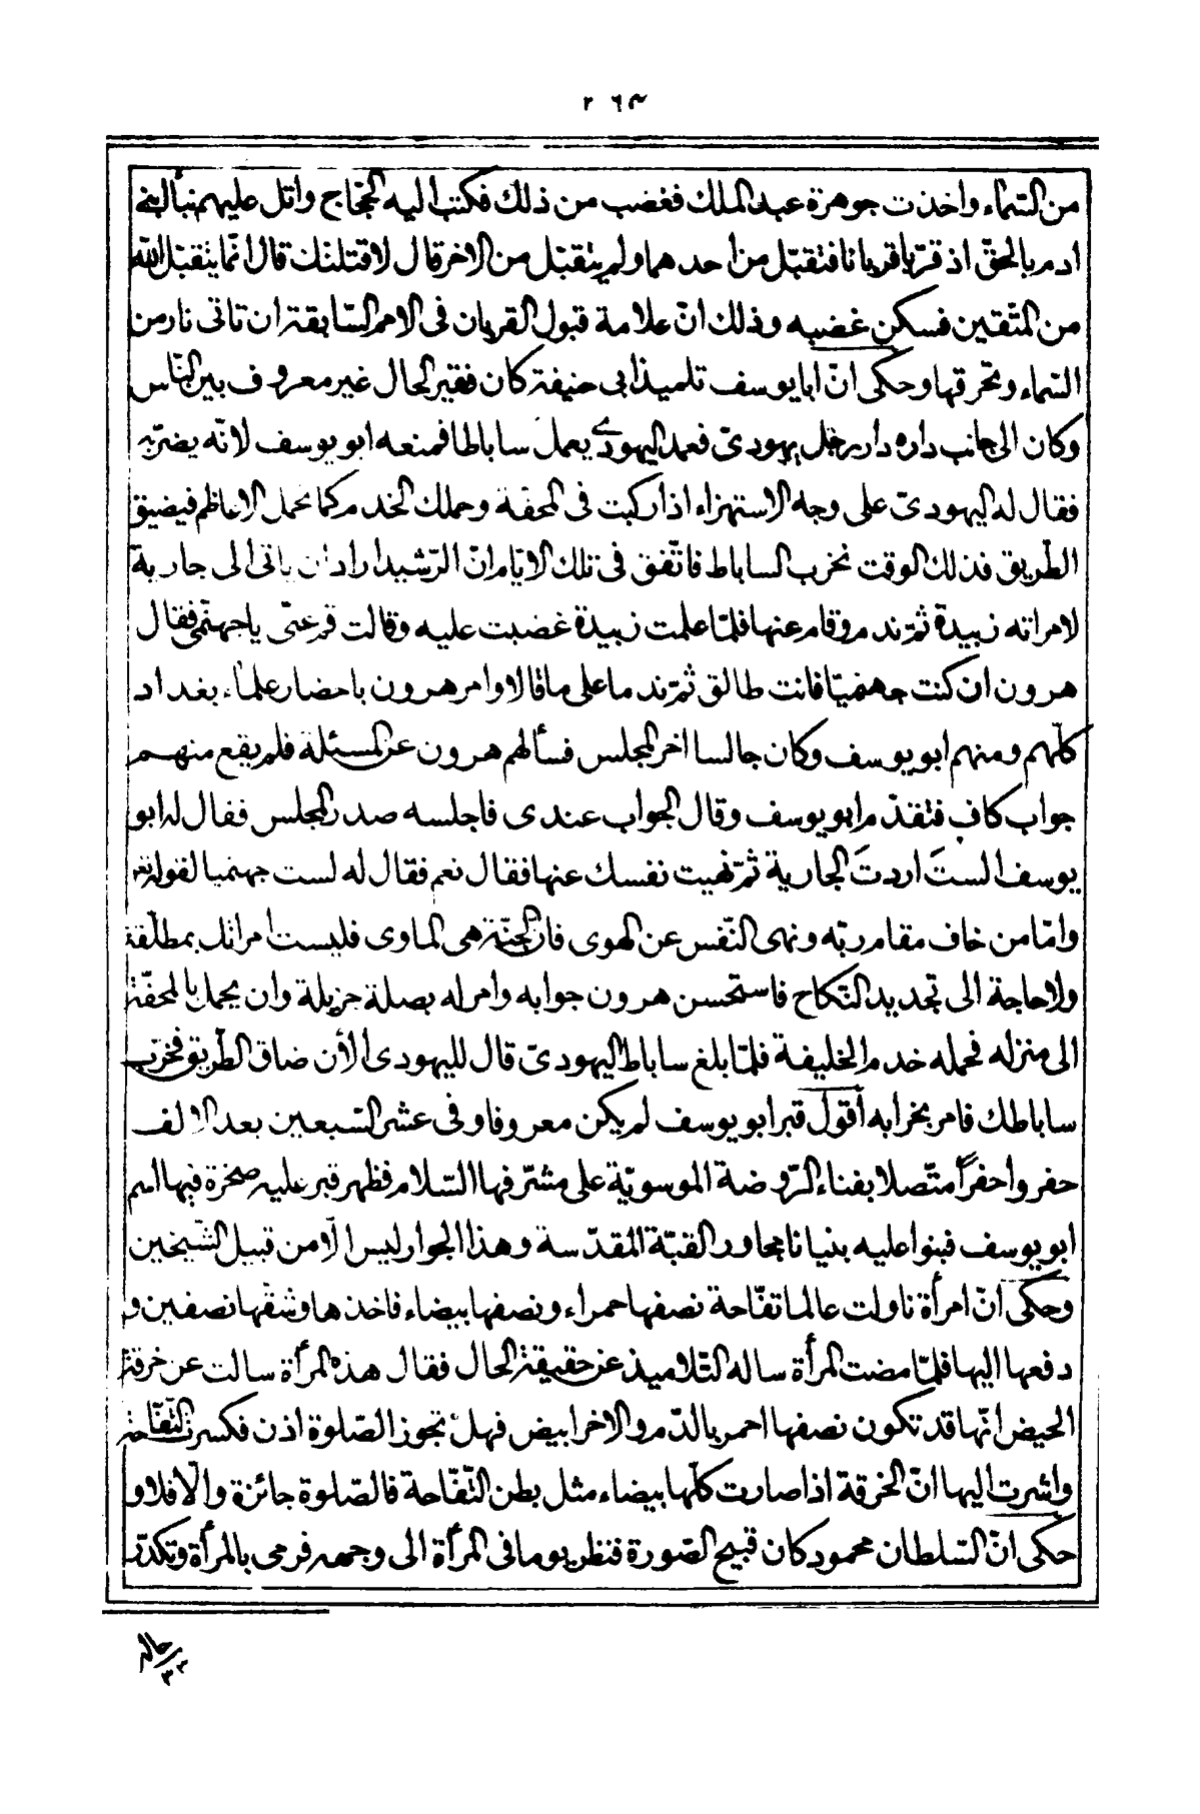 ٢٦٤
من السّماء واخذت جوهرة عبد الملك فغضب من ذلك فكتب اليه الحجّاج واتل عليهم نبأ ابنى
ادم بالحقّ اذ قرّبا قربانا فتقبّل من احدهما ولم يتقبّل من الاخر قال لاقتلنّك قال انّما يتقبّل الله
من المتّقين فسكن غضبه وذلك انّ علامة قبول القربان فى الامم السّابقة ان تاتى نار من
السّماء وتحرقها وحكى انّ ابا يوسف تلميذ ابى حنيفة كان فقير الحال غير معروف بين النّاس
وكان الى جانب داره دار رجل يهودىّ فعمد اليهودى يعمل ساباطا فمنعه ابو يوسف لانّه يضرّ به
فقال له اليهودىّ على وجه الاستهزاء اذا ركبت فى المحفّة وحملك الخدم كما تحمل الاعاظم فيضيق
الطّريق فذلك الوقت نخرب الساباط فاتّفق فى تلك الايّام انّ الرّشيد اراد ان ياتى الى جارية
لامراته زبيدة ثمّ ندم وقام عنها فلمّا علمت زبيدة غضبت عليه وقالت قم عنّى ياجهنّمى فقال
هرون ان كنت جهنميّا فانت طالق ثمّ ندما على ما قالا وامر هرون باحضار علماء بغداد
كلّهم ومنهم ابو يوسف وكان جالسا اخر المجلس فسألهم هرون عن المسئلة فلم يقع منهم
جواب كاف فتقدّم ابو يوسف وقال الجواب عندى فاجلسه صدر المجلس فقال له ابو
يوسف الستَ اردتَ الجارية ثمّ نهيت نفسك عنها فقال نعم فقال له لست جهنميا لقوله تعم
وامّا من خاف مقام ربّه ونهى النّفس عن الهوى فانّ الجنّة هى الماوى فليست امراتك بمطلّقة
ولا حاجة الى تجديد النّكاح فاستحسن هرون جوابه وامر له بصلة جزيلة وان يحمل بالمحفّة
الى منزله فحمله خدم الخليفة فلمّا بلغ ساباط اليهودىّ قال لليهودى الأن ضاق الطّريق فخرّب
ساباطك فامر بخرابه أقول قبر ابو يوسف لم يكن معروفا وفى عشر السّبعين بعد الالف
حفروا حفراً متّصلا بفناء الرّوضة الموسويّة على مشرّفها السّلام فظهر قبر عليه صخرة فيها اسم
ابو يوسف فبنوا عليه بنيانا مجاور القبّة المقدّسة وهذا الجوار ليس الّا من قبيل الشّيخين
وحكى انّ امرأة ناولت عالما تفّاحة نصفها حمراء ونصفها بيضاء فاخذها وشقّها نصفين و
دفعها اليها فلمّا مضت المرأة ساله التّلاميذ عن حقيقة الحال فقال هذه المرأة سالت عن خرقة
الحيض انّها قد تكون نصفها احمر بالدّم والاخر ابيض فهل تجوز الصّلوة اذن فكسرت التّفّاحة
واشرت اليها انّ الخرقة اذا صارت كلّها بيضاء مثل بطن التّفّاحة فالصّلوة جائزة والّا فلا و
حكى انّ السّلطان محمود كان قبيح الصّورة فنظر يوما فى المرأة الى وجهه فرمى بالمرأة وتكدّر